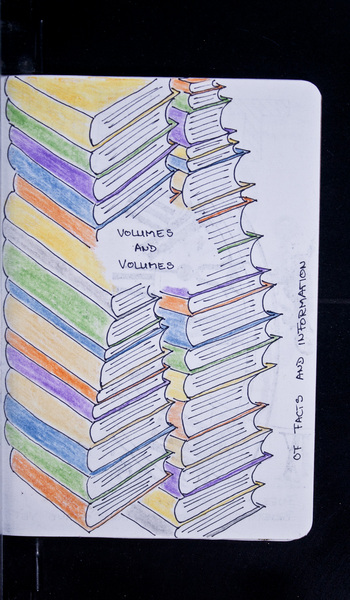 VOLUMES
AND
VOLUMES
OF FACTS AND INFORMATION